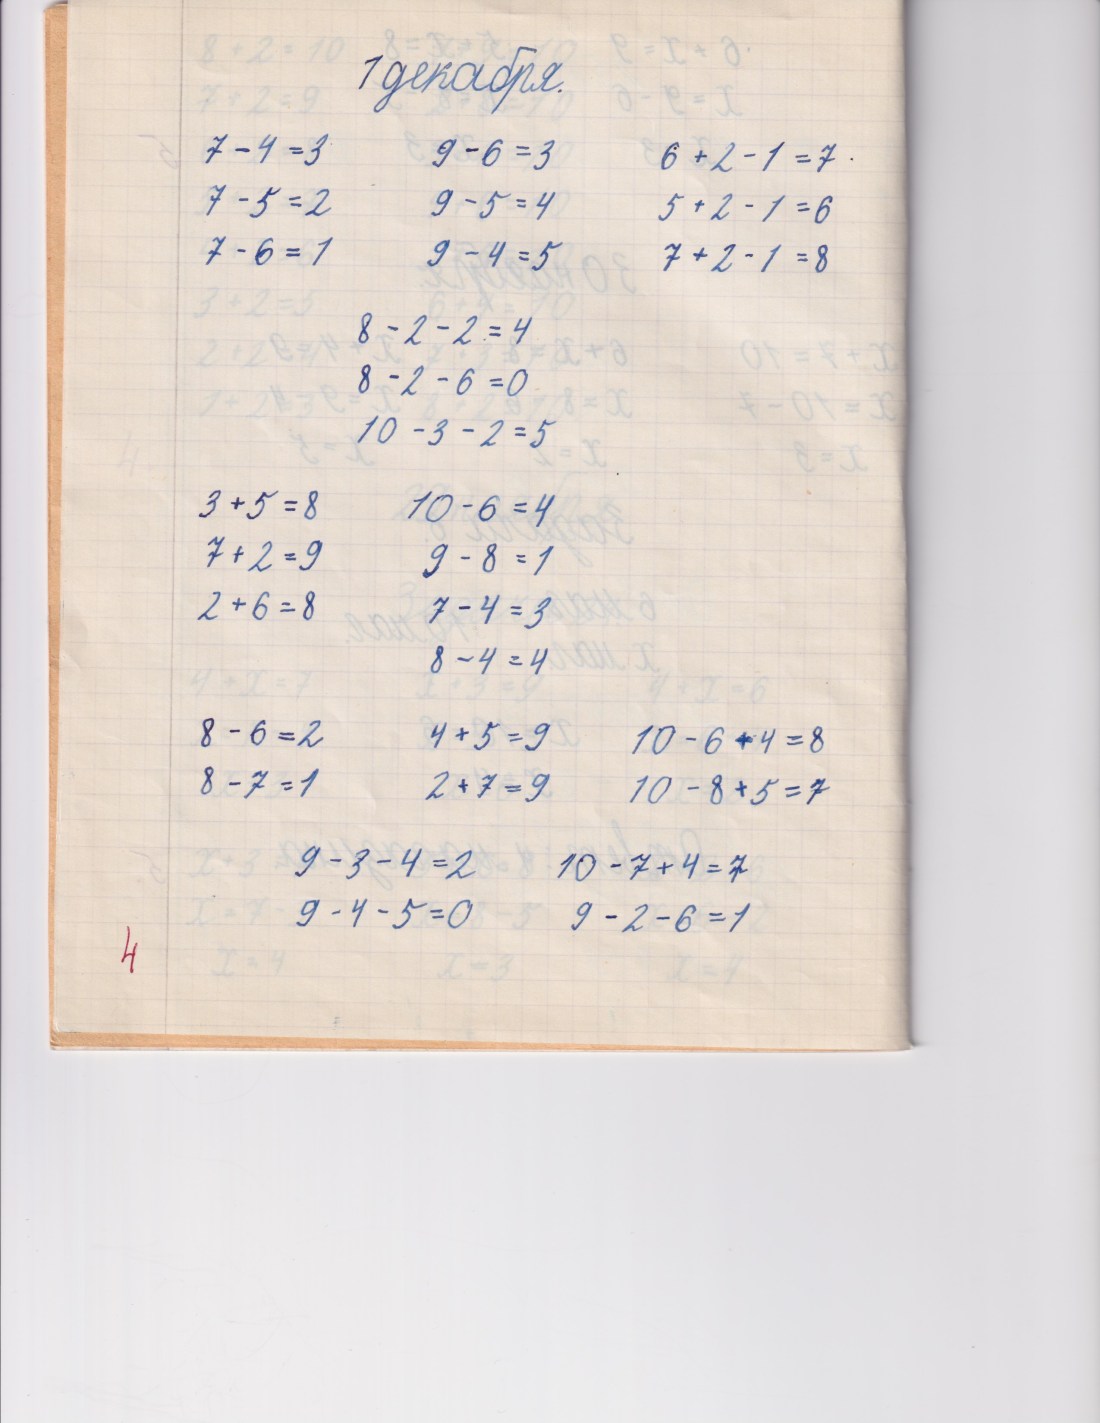 1 декабря.
7 - 4 = 3 9 - 6 = 3 6 + 2 - 1 = 7
7 - 5 = 2 9 - 5 = 4 5 + 2 - 1 = 6
7 - 6 = 1 9 - 4 = 5 7 + 2 - 1 = 8
8 - 2 - 2 = 4
8 - 2 - 6 = 0
10 - 3 - 2 = 5
3 + 5 = 8 10 - 6 = 4
7 + 2 = 9 9 - 8 = 1
2 + 6 = 8 7 - 4 = 3
8 - 4 = 4
8 - 6 = 2 4 + 5 = 9 10 - 6 + 4 = 8
8 - 7 = 1 2 + 7 = 9 10 - 8 + 5 = 7
9 - 3 - 4 = 2 10 - 7 + 4 = 7
9 - 4 - 5 = 0 9 - 2 - 6 = 1
4